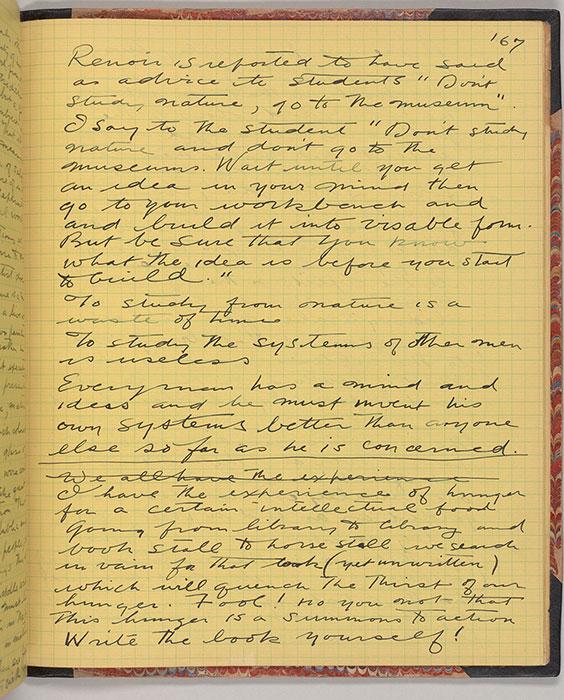 167
Renoir is reported to have said
as advice to students "Don't
study nature, go to the museum".
I say to the student "Don't study
nature and don't go to the
museums. Wait until you get
an idea in your mind then
go to your workbench and
and build it into visable form.
But be sure that you know
what the idea is before you start
to build."
To study from nature is a
waste of time
To study the systems of other men
is useless
Every man has a mind and
ideas and he must invent his
own systems better than anyone
else so far as he is concerned.
We all have the experience
I have the experience of hunger
for a certain intellectual food
Going from library to library and
book stall to horse stall we search
in vain for that book (yet unwritten)
which will quench the thirst of our
hunger. Fool! no you not that
this hunger is a summons to action
Write the book yourself!